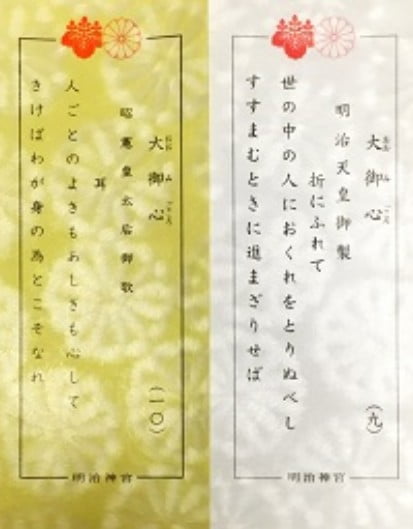 大御心
(九)
明治天皇御製
折にふれて
世の中の人におくれをとりぬべし
すすまむときに進まざりせば
明治神宮
大御心
(一〇)
昭憲皇太后御歌
耳
人ごとのよきもあしきも心して
きけばわが身の為とこそなれ
明治神宮